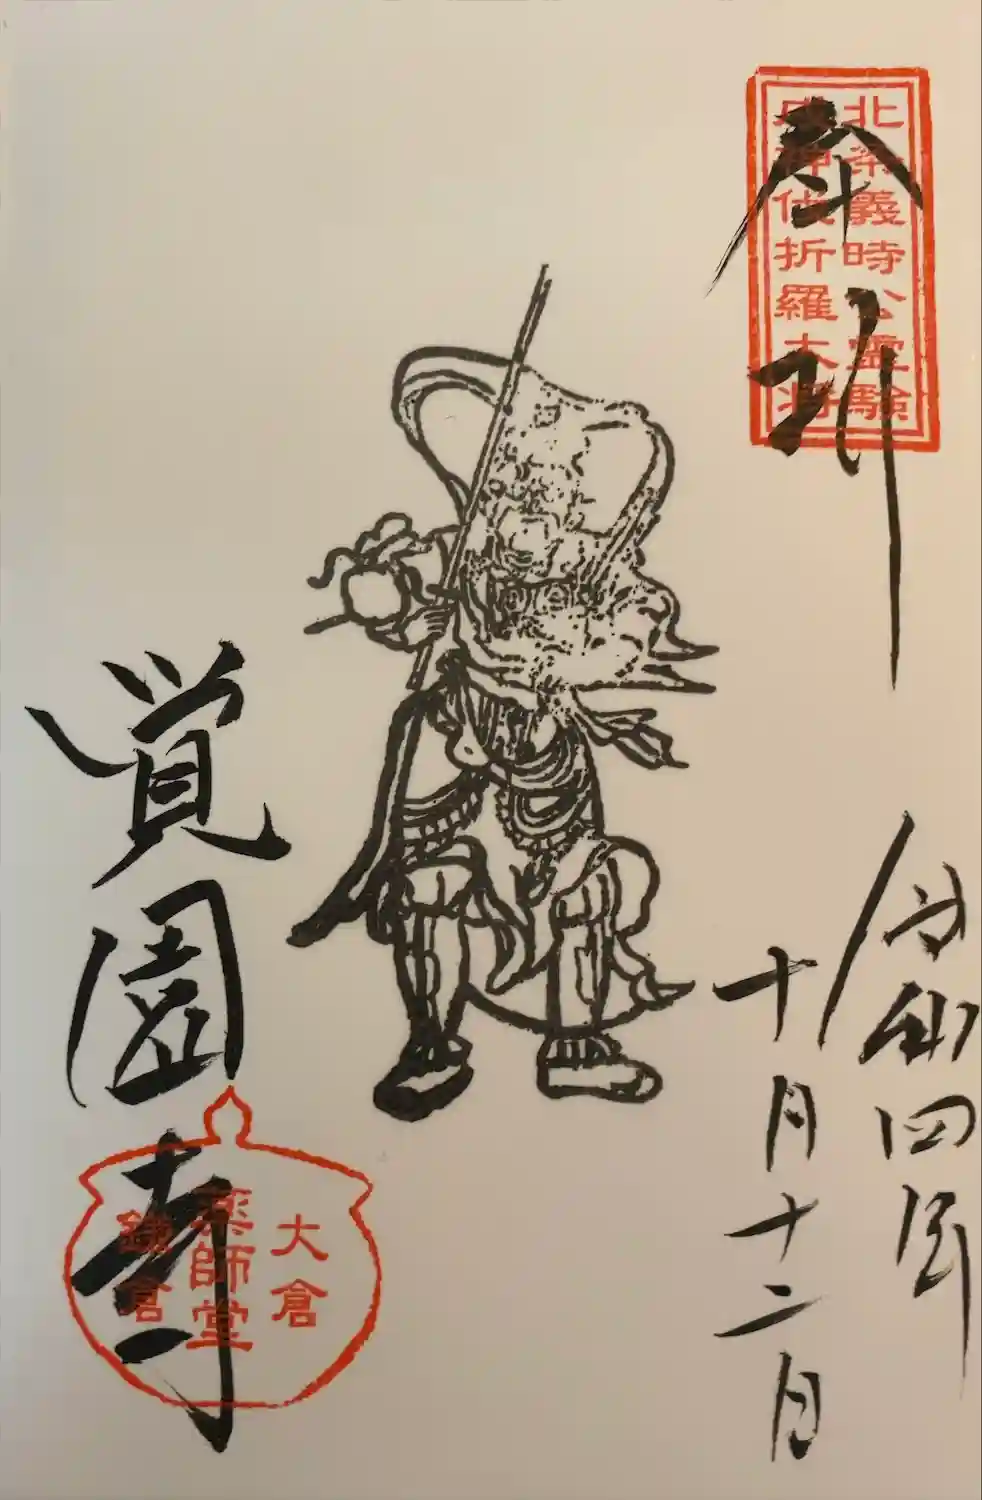 奉拝
北条義時公霊験
戌神伐折羅大将
令和四年
十月十二日
覚園寺
大倉
薬師堂
鎌倉